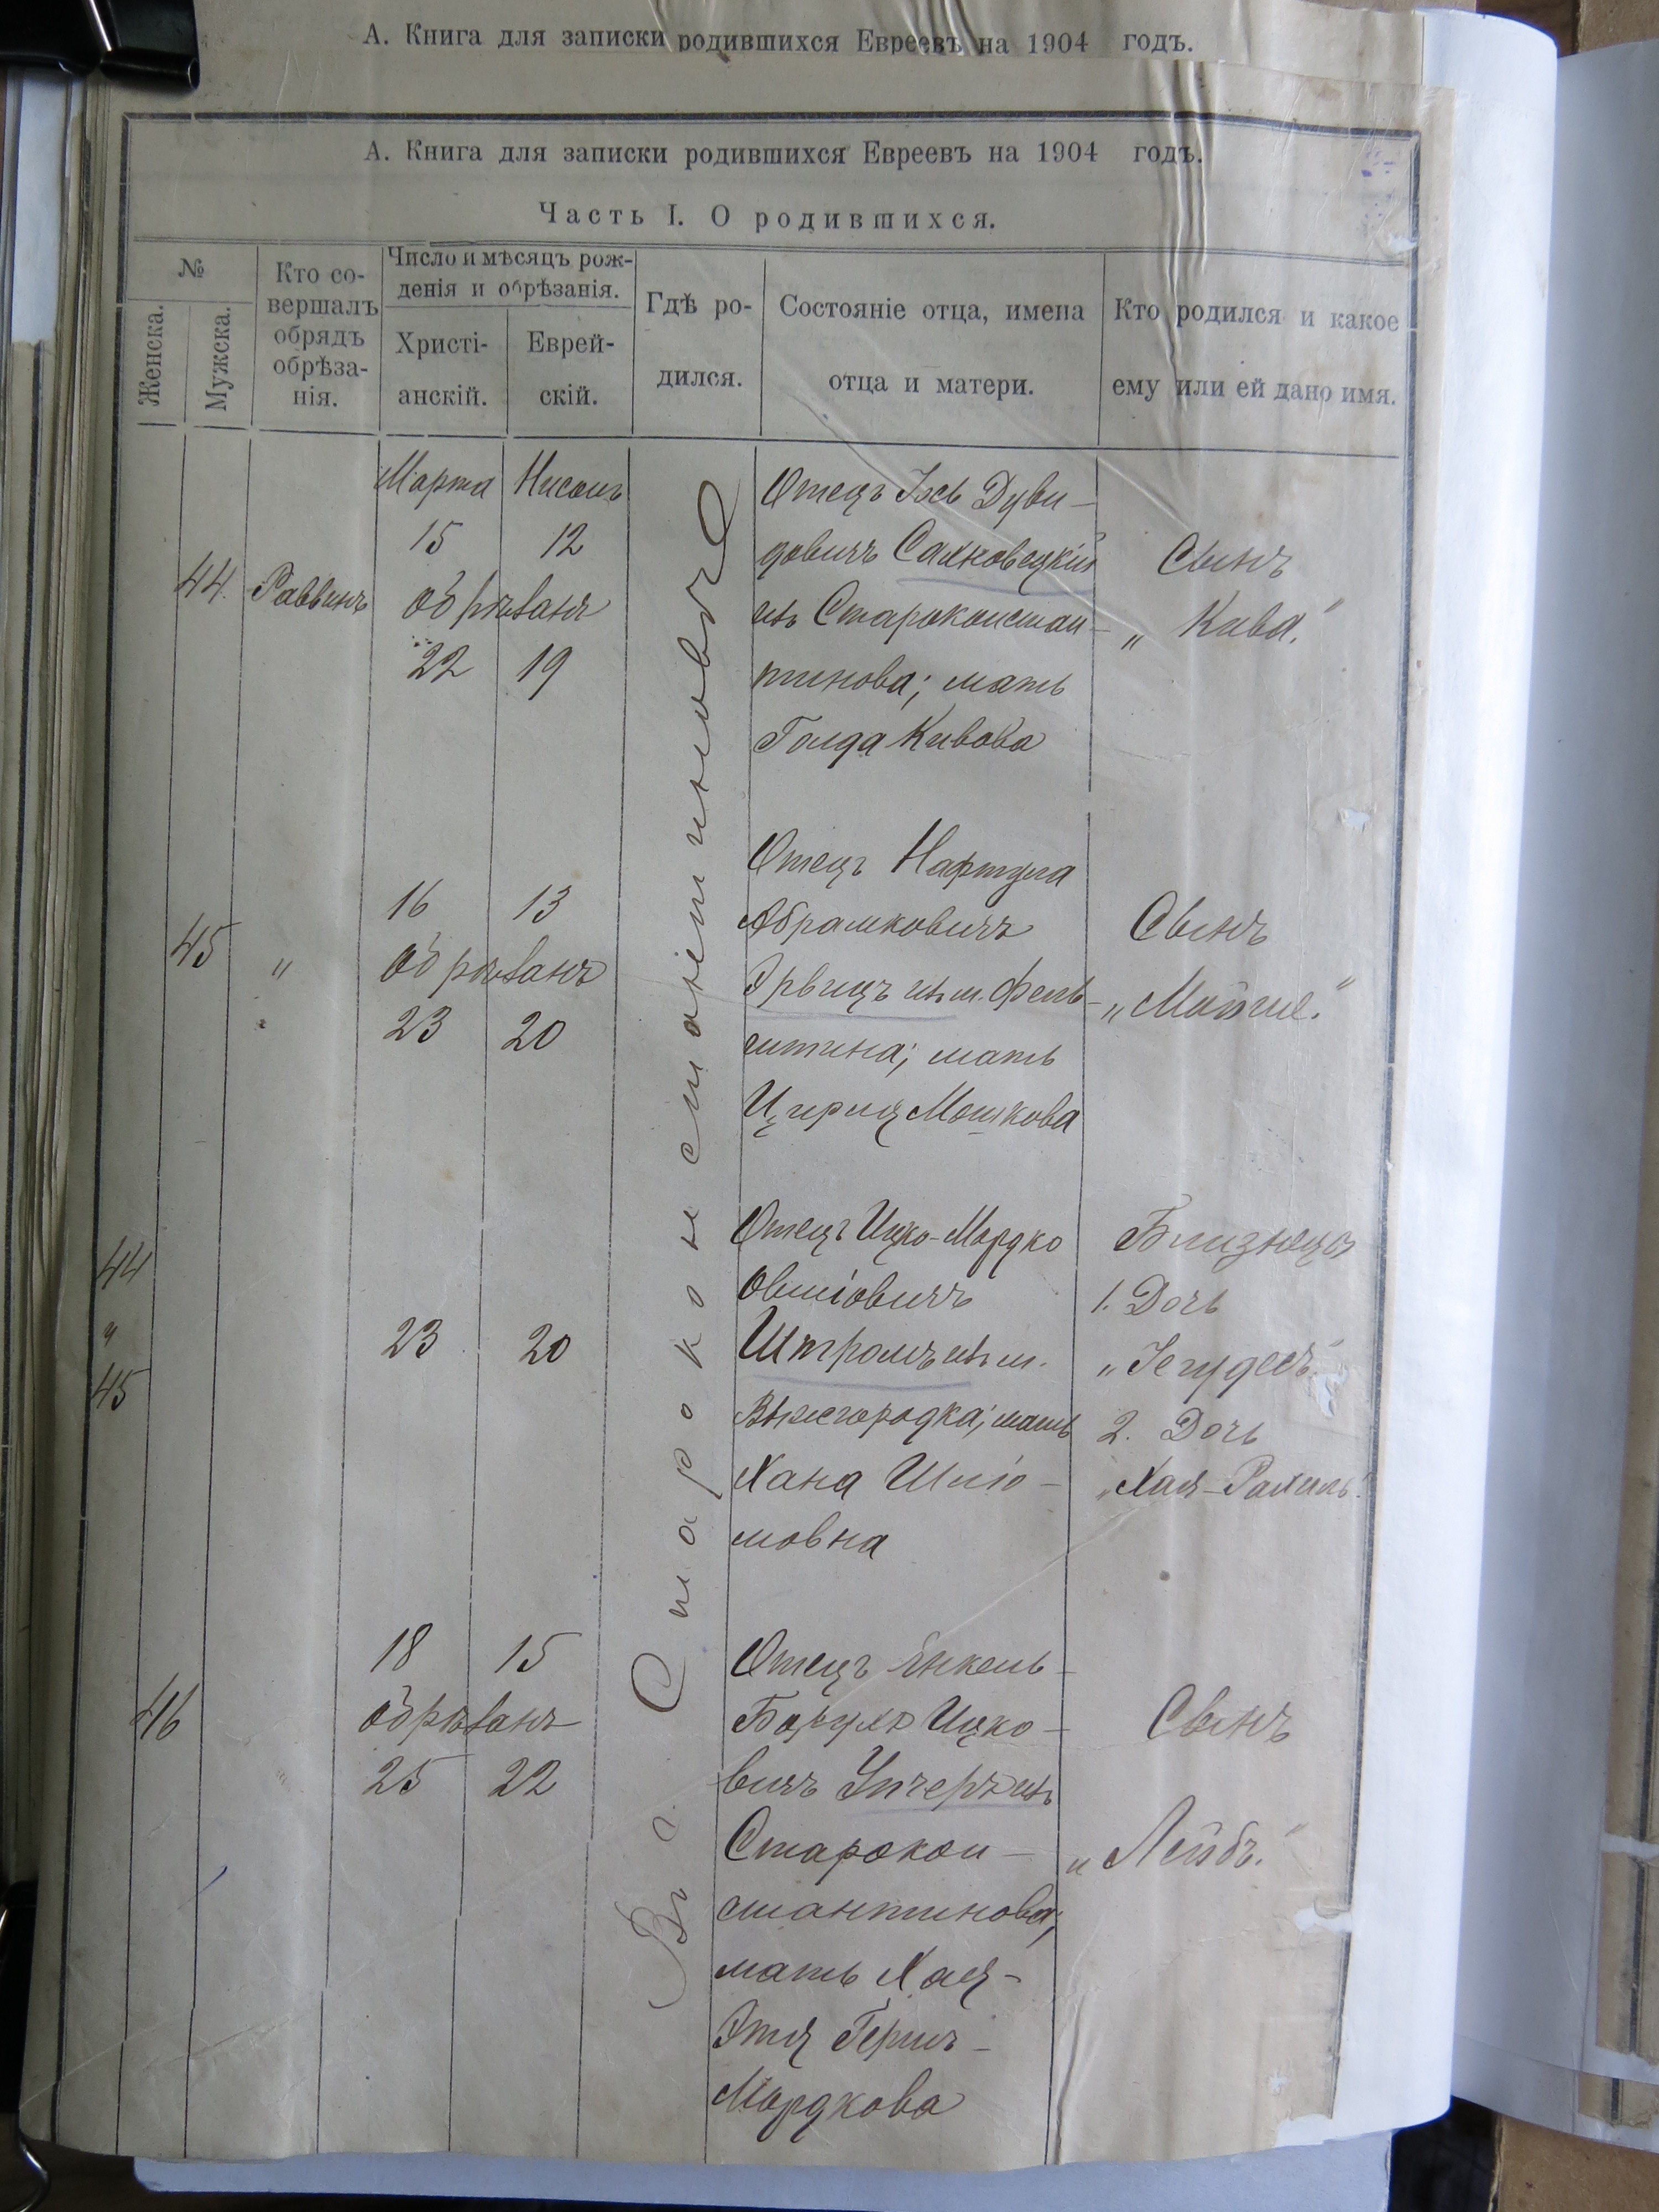 А. Книга для записки родившихся Евреевъ на 1904 годъ.
А. Книга для записки родившихся Евреевъ на 1904 годъ.
Часть I. О родившихся.
№
Женска.
Мужска.
Кто со-
вершалъ
обрядъ
обрѣза-
нія.
Число и мѣсяцъ рож-
денія и обрѣзанія.
Христі-
анскій.
Еврей-
скій.
Гдѣ ро-
дился.
Состояніе отца, имена
отца и матери.
Кто родился и какое
ему или ей дано имя.
Въ г. Староконстантиновѣ
44.
Раввинъ
Марта Нисонъ
15 12
обрѣзанъ
22 19
Отецъ Іось Дуви-
довичъ Сахновецкій
изъ Староконстан-
тинова; мать
Голда Кивова
Сынъ
„Кива."
45
"
16 13
обрѣзанъ
23 20
Отецъ Нафтула
Абрамковичъ
Эрвицъ изъ м. Фель-
штина; мать
Цирля Мошкова
Сынъ
„Мойше."
44
"
45
23 20
Отецъ Ицко-Мордко
Овшіовичъ
Штромъ изъ м.
Вышегородка; мать
Хана Шліо-
мовна
Близнецы
1. Дочь
2. Дочь
„Хая-Рахиль."
46
18 15
обрѣзанъ
25 22
Отецъ Янкель-
Борухъ Ицко-
вичъ изъ
Старокон-
стантинова;
мать Хая-
Этя Гершъ-
Мордкова
Сынъ
„Лейбъ."